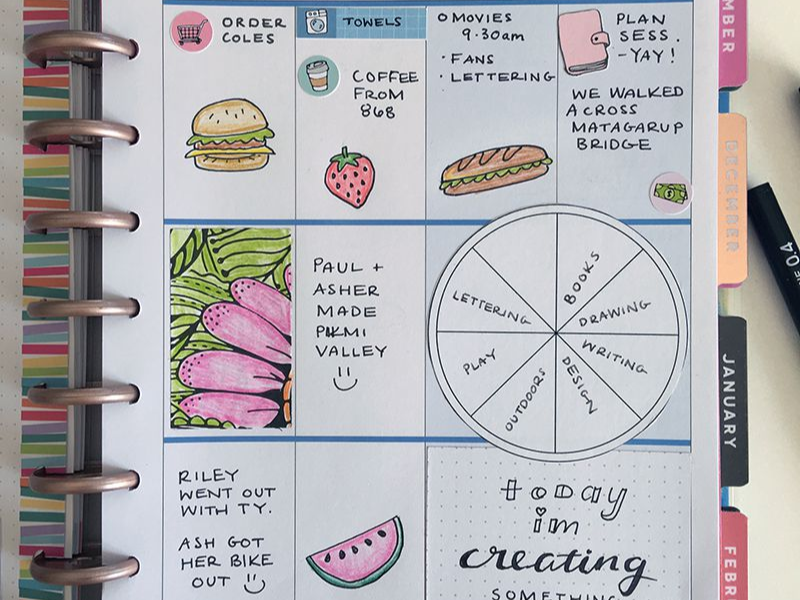 ORDER
COLES
TOWELS
COFFEE
FROM
868
O MOVIES
9.30am
· FANS
· LETTERING
PLAN
SESS.
-YAY!
WE WALKED
ACROSS
MATAGARUP
BRIDGE
MBER
DECEMBER
JANUARY
FEBR
0.4
PAUL +
ASHER
MADE
PIKMI
VALLEY
BOOKS
DRAWING
WRITING
DESIGN
OUTDOORS
PLAY
LETTERING
RILEY
WENT OUT
WITH TY.
ASH GOT
HER BIKE
OUT
today
im
creating
SOMETHING